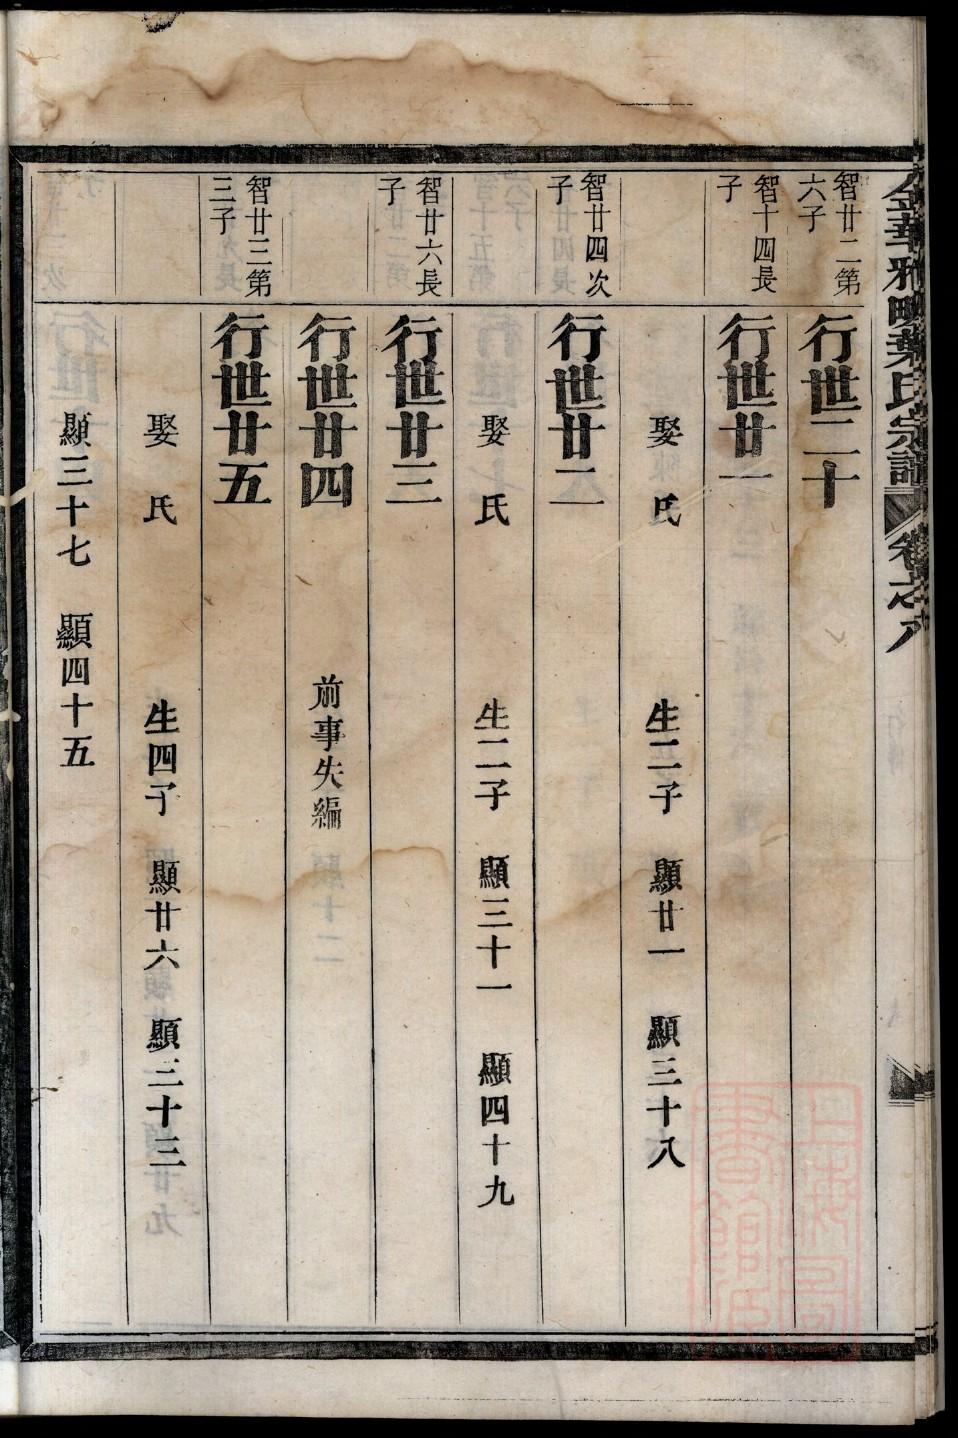 金華雅畈葉氏宗譜 卷之八
智廿二第六子
行世二十
智十四長子
行世廿一
娶 氏 生二子 顯廿一 顯三十八
智廿四次子
行世廿二
娶 氏 生二子 顯三十一 顯四十九
智廿六長子
行世廿三
行世廿四 前事失編
智廿三第三子
行世廿五
娶 氏 生四子 顯廿六 顯三十三
顯三十七 顯四十五